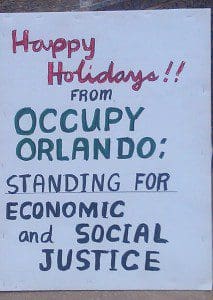 Happy
Holidays!!
FROM
OCCUPY
ORLANDO:
STANDING FOR
ECONOMIC
and SOCIAL
JUSTICE